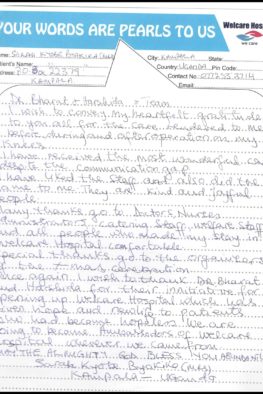 YOUR WORDS ARE PEARLS TO US
Welcare Hos
we care
Name: SARAH KYOBE BYAKIKA
City: KAMPALA
State:
Patient's Name:
Country: UGANDA Pin Code:
P.O Box 22319
Contact No:
KAMPALA
Email
Dr. Bharat + Harshida + Team
I wish to convey my heartfelt gratitude
to you all for the care rendered to me
before during and after operation on my
knees.
I have received the most wonderful care
despite the communication gap.
I have liked the staff and also did the
same to me. They are kind and joyful
people
Many thanks go to Doctors, Nurses
Administrators, catering staff, welfare staff
and all people who made my stay in
Welcare Hospital comfortable
Special thanks go to the organizers
of the X-mas celebration
Once again I wish to thank Dr. Bharat
and Harshida for their initiative for
opening up Welcare Hospital which has
given hope and new life to patients
who had become hopeless. We are
going to become Ambassadors of Welcare
Hospital wherever we come from
MAY THE ALMIGHTY GOD BLESS YOU ABUNDANTLY
Sarah Kyobe Byakika (Mrs)
Kampala - Uganda